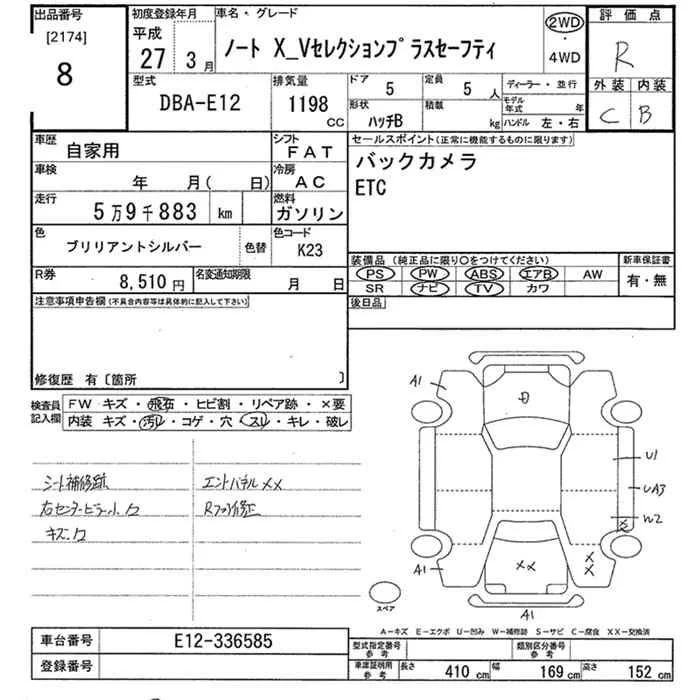 出品番号
[2174]
8
初度登録年月
平成
27年 3月
車名・グレード
ノート X_Vセレクションプラスセーフティ
2WD
・
4WD
評価点
R
外装 内装
C B
型式
DBA-E12
排気量
1198 CC
ドア 5
定員 5人
形状 ハッチB
積載 kg
ディーラー・並行
モデル年式 年
ハンドル 左・右
車歴 自家用
シフト FAT
車検 年 月( 日)
冷房 AC
走行 5万9千883 km
燃料 ガソリン
色 ブリリアントシルバー 色替
色コード K23
R券 8,510円
名変通知期限 月 日
セールスポイント(正常に機能するものに限ります)
バックカメラ
ETC
装備品(純正品に限り○をつけてください)
PS PW ABS エアB AW
SR ナビ TV カワ
新車保証書
有・無
後日品
注意事項申告欄(不具合内容等は具体的に記入して下さい)
修復歴 有〔箇所 〕
検査員記入欄
FW キズ・飛石・ヒビ割・リペア跡・×要
内装 キズ・汚レ・コゲ・穴・スレ・キレ・破レ
シート補修跡
エンドパネルXX
右センターピラー
キズ
Rフロア修正
A1
U1
UA3
W2
X
A1
XX
X
X
A1
スペア
A－キズ E－エクボ U－凹み W－補修跡 S－サビ C－腐食 XX－交換済
車台番号 E12-336585
登録番号
型式指定番号 参考
類別区分番号 参考
車庫証明用 参考
長さ 410 cm 幅 169 cm 高さ 152 cm